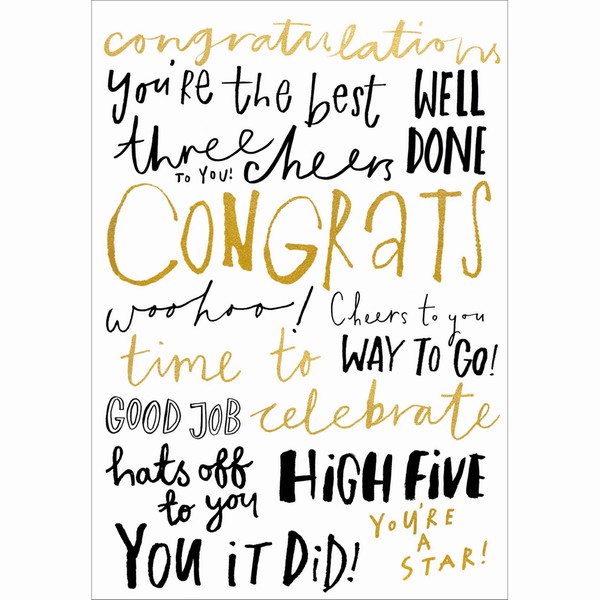 congratulations
you're the best
WELL DONE
three cheers
TO YOU!
CONGRATS
woohoo!
Cheers to you
time to
WAY TO GO!
GOOD JOB
celebrate
hats off
to you
HIGH FIVE
YOU'RE
A
STAR!
YOU iT DiD!